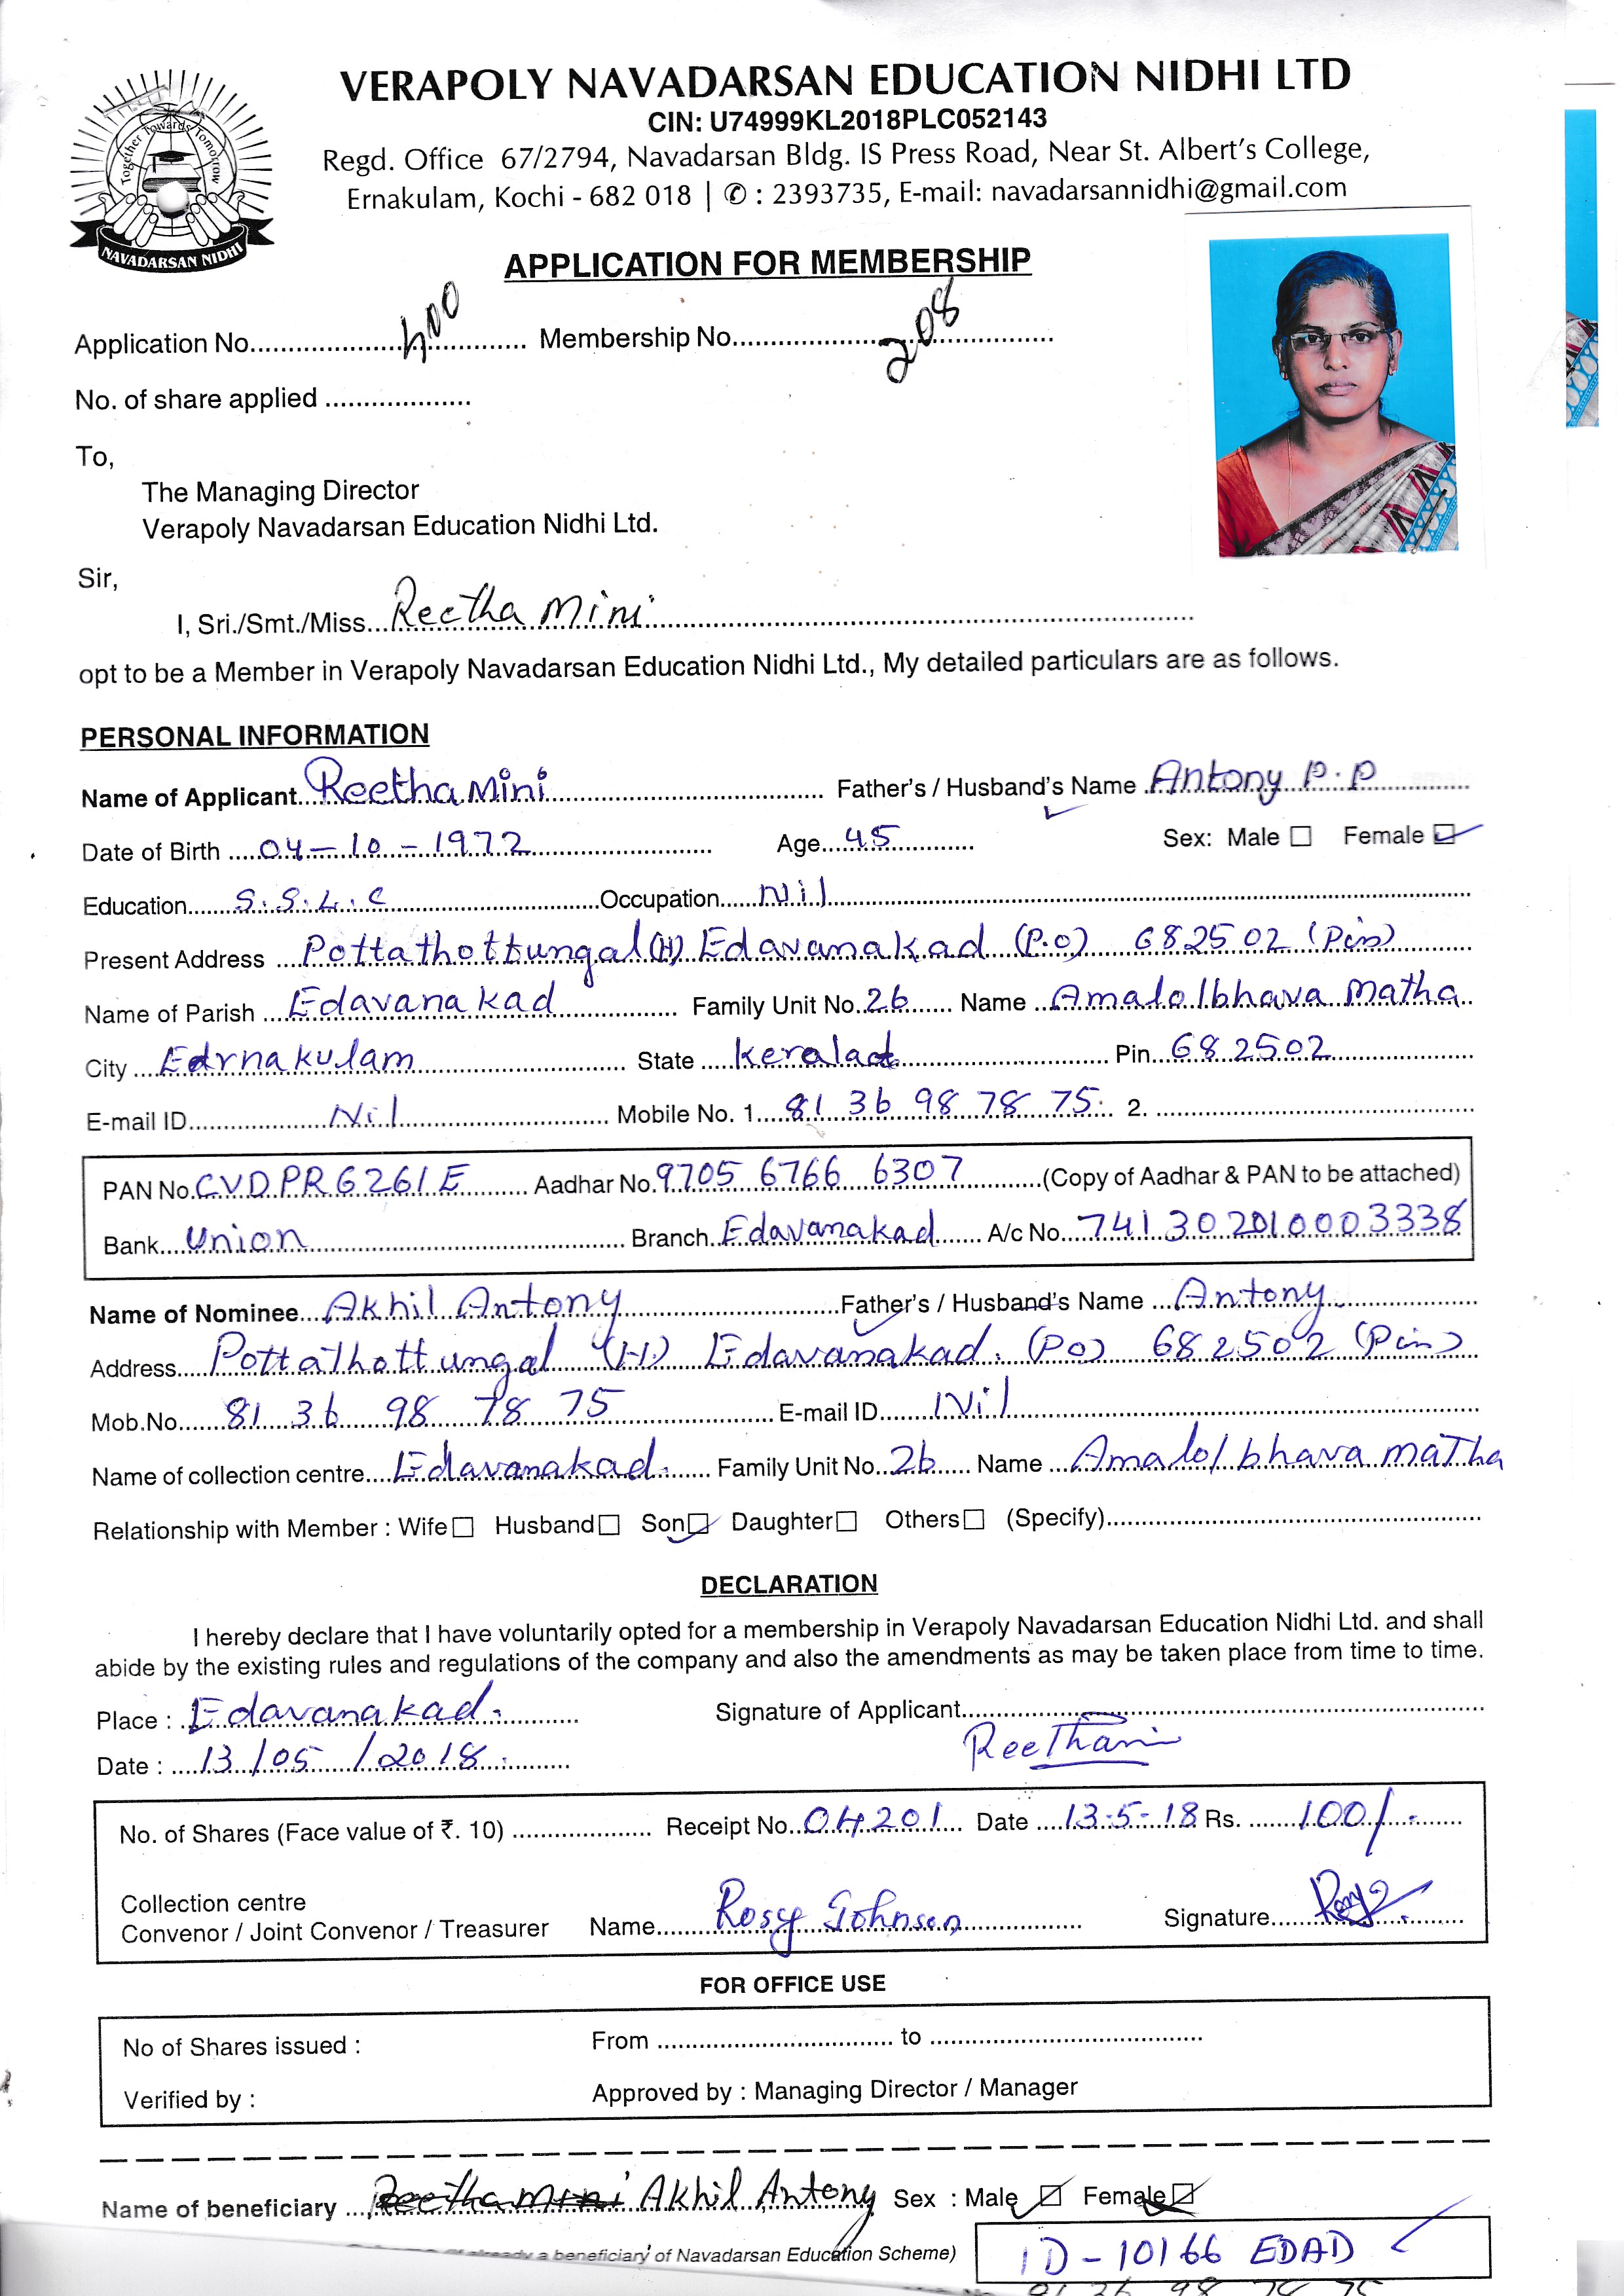 VERAPOLY NAVADARSAN EDUCATION NIDHI LTD
CIN: U74999KL2018PLC052143
Regd. Office 67/2794, Navadarsan Bldg. IS Press Road, Near St. Albert's College,
Ernakulam, Kochi - 682 018 | ✆ : 2393735, E-mail: navadarsannidhi@gmail.com
Together Towards Tomorrow
NAVADARSAN NIDHI
APPLICATION FOR MEMBERSHIP
Application No. 400 Membership No. 208
No. of share applied
To,
The Managing Director
Verapoly Navadarsan Education Nidhi Ltd.
Sir,
I, Sri./Smt./Miss. Reetha Mini
opt to be a Member in Verapoly Navadarsan Education Nidhi Ltd., My detailed particulars are as follows.
PERSONAL INFORMATION
Name of Applicant Reetha Mini Father's / Husband's Name Antony P.P
Date of Birth 04-10-1972 Age 45 Sex: Male ☐ Female ☑
Education S.S.L.C Occupation Nil
Present Address Pottathottungal (H) Edavanakad (P.O) 682502 (Pin)
Name of Parish Edavanakad Family Unit No. 26 Name Amalolbhava Matha
City Edrnakulam State Kerala Pin 682502
E-mail ID Nil Mobile No. 1. 81 36 98 78 75 2.
PAN No. CVDPR6261E Aadhar No. 9705 6766 6307 (Copy of Aadhar & PAN to be attached)
Bank Union Branch Edavanakad A/c No. 741302010003338
Name of Nominee Akhil Antony Father's / Husband's Name Antony
Address Pottathottungal (H) Edavanakad. (PO) 682502 (Pin)
Mob.No. 81 36 98 78 75 E-mail ID Nil
Name of collection centre Edavanakad. Family Unit No. 26 Name Amalolbhava Matha
Relationship with Member : Wife ☐ Husband ☐ Son ☑ Daughter ☐ Others ☐ (Specify)
DECLARATION
I hereby declare that I have voluntarily opted for a membership in Verapoly Navadarsan Education Nidhi Ltd. and shall
abide by the existing rules and regulations of the company and also the amendments as may be taken place from time to time.
Place : Edavanakad. Signature of Applicant
Date : 13/05/2018. Reethami
No. of Shares (Face value of ₹. 10) Receipt No. 04201 Date 13-5-18 Rs. 100/-
Collection centre
Convenor / Joint Convenor / Treasurer Name Rosy Johnson Signature Rosy
FOR OFFICE USE
No of Shares issued : From to
Verified by : Approved by : Managing Director / Manager
Name of beneficiary Reetha Mini Akhil Antony Sex : Male ☑ Female ☑
already a beneficiary of Navadarsan Education Scheme)
ID-10166 EDAD
81 36 98 78 75